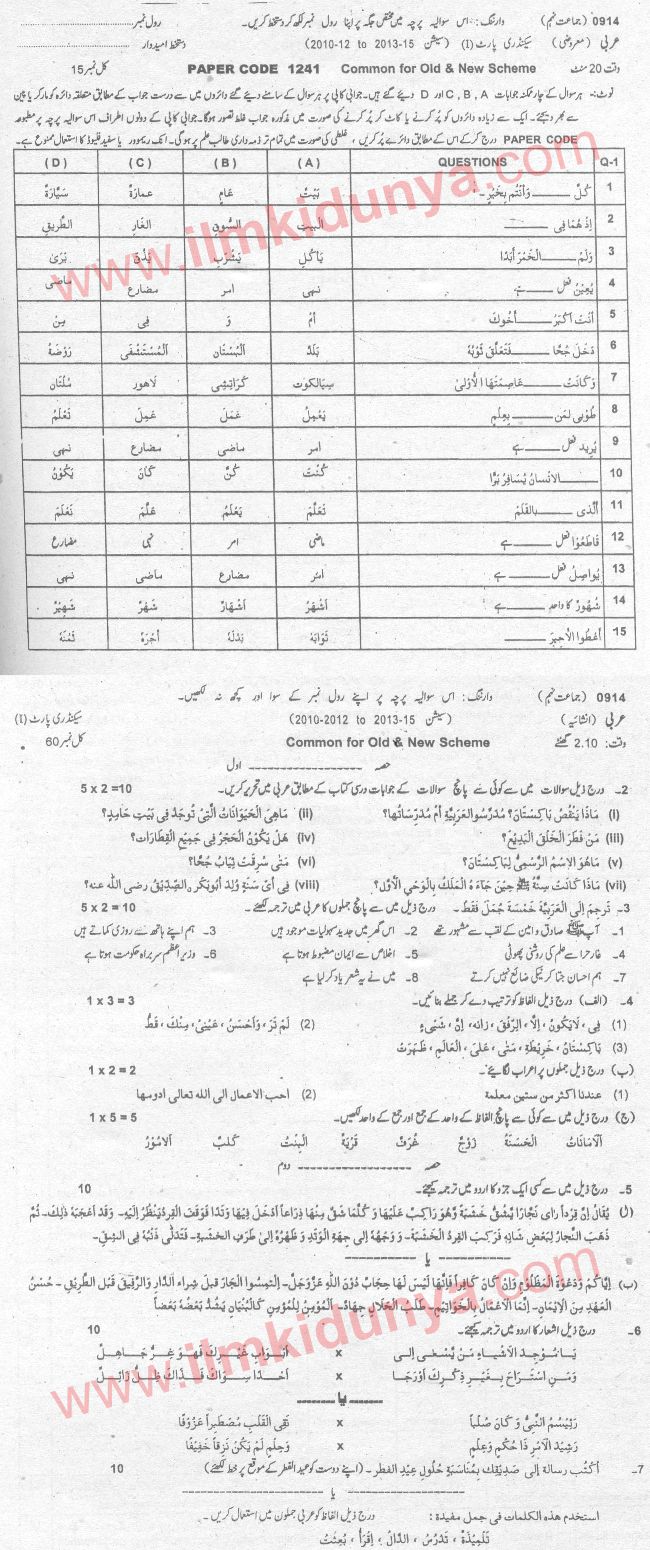 0914 (جماعت نہم) وارننگ: اس سوالیہ پرچہ میں مختص جگہ پر اپنا رول نمبر لکھ کر دستخط کریں۔ رول نمبر
عربی (معروضی) سیکنڈری پارٹ (I) (سیشن 2010-12 to 2013-15) دستخط امیدوار
وقت 20 منٹ Common for Old & New Scheme PAPER CODE 1241 کل نمبر 15
نوٹ:- ہر سوال کے چار ممکنہ جوابات A , B , C اور D دیئے گئے ہیں۔ جوابی کاپی پر ہر سوال کے سامنے دیئے گئے دائروں میں سے درست جواب کے مطابق متعلقہ دائرہ کو مارکر یا پین
سے بھر دیجئے۔ ایک سے زیادہ دائروں کو پُر کرنے یا کاٹ کر پُر کرنے کی صورت میں مذکورہ جواب غلط تصور ہوگا۔ جوابی کاپی کے دونوں اطراف اس سوالیہ پرچہ پر مطبوعہ
PAPER CODE درج کر کے اس کے مطابق دائرے پُر کریں، غلطی کی صورت میں تمام تر ذمہ داری طالب علم پر ہوگی۔ انک ریموور یا سفید فلیوڈ کا استعمال ممنوع ہے۔
Q-1 QUESTIONS (A) (B) (C) (D)
1 كُلُّ ــــــ وَأَنْتُم بِخَيْرٍ۔ بَيْتٌ عَامٍ عِمَارَةٌ سَيَّارَةٌ
2 اِذْ هُمَا فِى ــــــ البيتِ السُّوقِ الغَارِ الطَّرِيقِ
3 وَلَمْ ــــــ الْخَمْرَ أَبَدًا يَأكُلْ يَشْرَبْ يَذُقْ يَرَىٰ
4 يُعِيْنُ فعل ــــــ ہے نہی امر مضارع ماضی
5 أَنْتَ اَكْبَرُ ــــــ أَخُوكَ أَمْ وَ فِى مِنْ
6 دَخَلَ جُحَا ــــــ فَتَعَلَّقَ ثَوْبُهٗ بَلَدٌ اَلْبُسْتَان اَلْمُسْتَشْفٰى رَوْضَةٌ
7 وَكَانَتْ ــــــ عَاصِمَتَهَا الْأُوْلىٰ سِيَالكوت كَرَاتِشِى لاهور مُلْتَان
8 طُوبٰى لِمَن ــــــ بِعِلْمٍ يَعْمِلُ عَمَلَ عَمِلَ تَعْلَمُ
9 يُرِيد فعل ــــــ ہے امر ماضی مضارع نہی
10 ــــــ الانسانُ يُسَافِرُ بَرًّا كُنْتَ كُنْ كَانَ يَكُوْنُ
11 اَلَّذِى ــــــ بالقَلَمْ تَعَلَّمَ يَعْلَمُ عَلَّمَ نَعْلَمُ
12 قَاطَعُوْا فعل ــــــ ہے ماضی امر نہی مضارع
13 يُوَاصِلُ فعل ــــــ ہے امر مضارع ماضی نہی
14 شُهُورٌ کا واحد ــــــ ہے أَشْهُرٌ أَشْهَارٌ شَهْرٌ شَهِيْرٌ
15 أَعْطُوا الْأَجِيرَ ــــــ ثَوَابَهٗ بَدَلَهٗ أَجْرَهٗ ثَمَنَهٗ
0914 (جماعت نہم) وارننگ: اس سوالیہ پرچہ پر اپنے رول نمبر کے سوا اور کچھ نہ لکھیں۔
عربی (انشائیہ) (سیشن 2010-2012 to 2013-15) سیکنڈری پارٹ (I)
وقت: 2.10 گھنٹے Common for Old & New Scheme کل نمبر 60
حصہ ــــــ اول
2۔ درج ذیل سوالات میں سے کوئی سے پانچ سوالات کے جوابات درسی کتاب کے مطابق عربی میں تحریر کریں۔ 5 x 2 =10
(i) مَاذَا يَنْقُصُ بَاكِسْتَانَ؟ مُدَرِّسُو العَرَبِيَّةِ أَمْ مُدَرِّسَاتُها؟ (ii) مَاهِىَ الْحَيَوَانَاتُ الَّتِىْ تُوجَدُ فِى بَيْتِ حَامِدٍ؟
(iii) مَن فَطَرَ الْخَلْقَ الْبَدِيْعَ؟ (iv) هَلْ يَكُوْنُ الْحَجْزُ فِى جَمِيْعِ الْقِطَارَاتِ؟
(v) مَاهُوَ الِاسْمُ الرَّسْمِىُّ لِبَاكِسْتَان؟ (vi) مَتٰى سُرِقَتْ ثِيَابُ جُحَا؟
(vii) مَاذَا كَانَتْ سِنُّهٗ ﷺ حِيْنَ جَاءَهُ الْمَلَكُ بِالْوَحْىِ الْأَوَّلِ؟ (viii) فِى أَىِّ سَنَةٍ وُلِدَ أَبُوبَكْرٍ الصِّدِّيْقُ رضى الله عنه؟
3۔ تَرْجِمْ اِلَى الْعَرَبِيَّةِ خَمْسَةَ جُمَلٍ فَقَطْ۔ درج ذیل میں سے پانچ جملوں کا عربی میں ترجمہ لکھئے۔ 5 x 2 = 10
1۔ آپ ﷺ صادق و امین کے لقب سے مشہور تھے 2۔ اس گھر میں جدید سہولیات موجود ہیں 3۔ ہم اپنے ہاتھ سے روزی کماتے ہیں
4۔ غار حرا سے علم کی روشنی پھوٹی 5۔ اخلاص سے ایمان مضبوط ہوتا ہے 6۔ وزیر اعظم سربراہ حکومت ہوتا ہے
7۔ ہم احسان جتا کر نیکی ضائع نہیں کرتے 8۔ میں نے یہ شعر یاد کر لیا ہے
4۔ (الف) درج ذیل الفاظ کو ترتیب دے کر جملے بنائیں۔ 1 x 3 = 3
(1) فِى، لَايَكُونُ، اِلَّا، الرِّفْقَ، زانه، اِنَّ، شَىْءٍ (2) لَمْ تَرَ، وَأَحْسَنُ، عَيْنِىْ، مِنْكَ، قَطُّ
(3) بَاكِسْتَانُ، خَرِيْطَةِ، مَتٰى، عَلىٰ، الْعَالَمِ، ظَهَرَتْ
(ب) درج ذیل جملوں پر اعراب لگایئے۔ 1 x 2 = 2
(1) عندنا اكثر من ستين معلمة (2) احب الاعمال الى الله تعالى ادومها
(ج) درج ذیل میں سے کوئی سے پانچ الفاظ کے واحد کے جمع اور جمع کے واحد لکھیں۔ 1 x 5 = 5
اَلْأمَانَاتُ الْحَسَنَةُ زَوْجٌ غُرَفٌ قَرْيَةٌ الْبِنْتُ كَلْبٌ اَلْامُوْرُ
حصہ ــــــ دوم
5۔ درج ذیل میں سے کسی ایک جزو کا اردو میں ترجمہ کیجئے۔ 10
(ا) يُقَالُ اِنَّ قِرْداً رَاى نَجَّارًا يَشُقُّ خَشَبَةً وَهُوَ رَاكِبٌ عَلَيْهَا وَ كُلَّمَا شَقَّ مِنْهَا ذِرَاعاً أَدْخَلَ فِيْهَا وَتَدًا فَوَقَفَ الْقِرْدُ يَنْظُرُ اِلَيْهِ۔ وَقَدْ أَعْجَبَهٗ ذٰلِكَ۔ ثُمَّ
ذَهَبَ النَّجَّارُ لِبَعْضِ شَانِهٖ فَرَكِبَ الْقِرْدُ الْخَشَبَةَ۔ وَ وَجْهُهٗ اِلىٰ جِهَةِ الْوَتَدِ وَ ظَهْرُهٗ اِلىٰ طَرَفِ الخَشَبةِ۔ فَتَدَلّٰى ذَنَبُهٗ فِى الشِّقِ۔
ــــــ یا ــــــ
(ب) إِيَّاكُمْ وَدَعْوَةَ الْمَظْلُوْمِ وَاِنْ كَانَ كَافِراً فَاِنَّهَا لَيْسَ لَهَا حِجَابٌ دُوْنَ اللهِ عَزَّوَجَلَّ۔ اِلْتَمِسُوا الْجَارَ قَبلَ شِراءِ الدَّارِ وَالرَّفِيْقَ قَبْلَ الطَّرِيْقِ۔ حُسْنُ
الْعَهْدِ مِنَ الْاِيْمَانِ۔ اِنَّمَا الْاَعْمَالُ بِالْخَوَاتِيْمِ۔ طَلَبُ الْحَلَالِ جِهَادٌ۔ اَلْمُؤمِنُ لِلْمُؤْمِنِ كَالْبُنْيَانِ يَشُدُّ بَعْضُهٗ بَعْضاً
6۔ درج ذیل اشعار کا اردو میں ترجمہ کیجئے۔ 10
يَا مُوْجِدَ الْأَشْيَاءِ مَنْ يَّسْعٰى اِلىٰ x أَبْوَابِ غَيْرِكَ فَهُوَ غِرٌّ جَاهِلٌ
وَمَنِ اسْتَرَاحَ بِغَيْرِ ذِكْرِكَ أَوْرَجَا x أَحَدًا سِوَاكَ فَذَاكَ ظِلٌّ زَائِلٌ
ــــــ یا ــــــ
رَئِيْسُهُمُ النَّبِىُّ وَ كَانَ صُلْباً x نَقِىَّ الْقَلْبِ مُصْطَبِراً عَزُوْفًا
رَشِيْدَ الْأَمْرِ ذَا حُكْمٍ وَعِلْمٍ x وَحِلْمٍ لَمْ يَكُنْ نَزِقاً خَفِيْفًا
7۔ أُكْتُبْ رسالة اِلىٰ صَدِيْقِكَ بِمُنَاسَبَةِ حُلُولِ عِيْدِ الفِطْرِ۔ (اپنے دوست کو عید الفطر کے موقع پر خط لکھئے) 10
ــــــ یا ــــــ
استخدم هذه الكلمات فى جمل مفيدة: درج ذیل الفاظ کو عربی جملوں میں استعمال کریں۔
تِلْمِيْذَةٌ، تَدْرُسُ، الدَّالُ، اِقْرَأْ، بُعِثْتُ
www.ilmkidunya.com
www.ilmkidunya.com